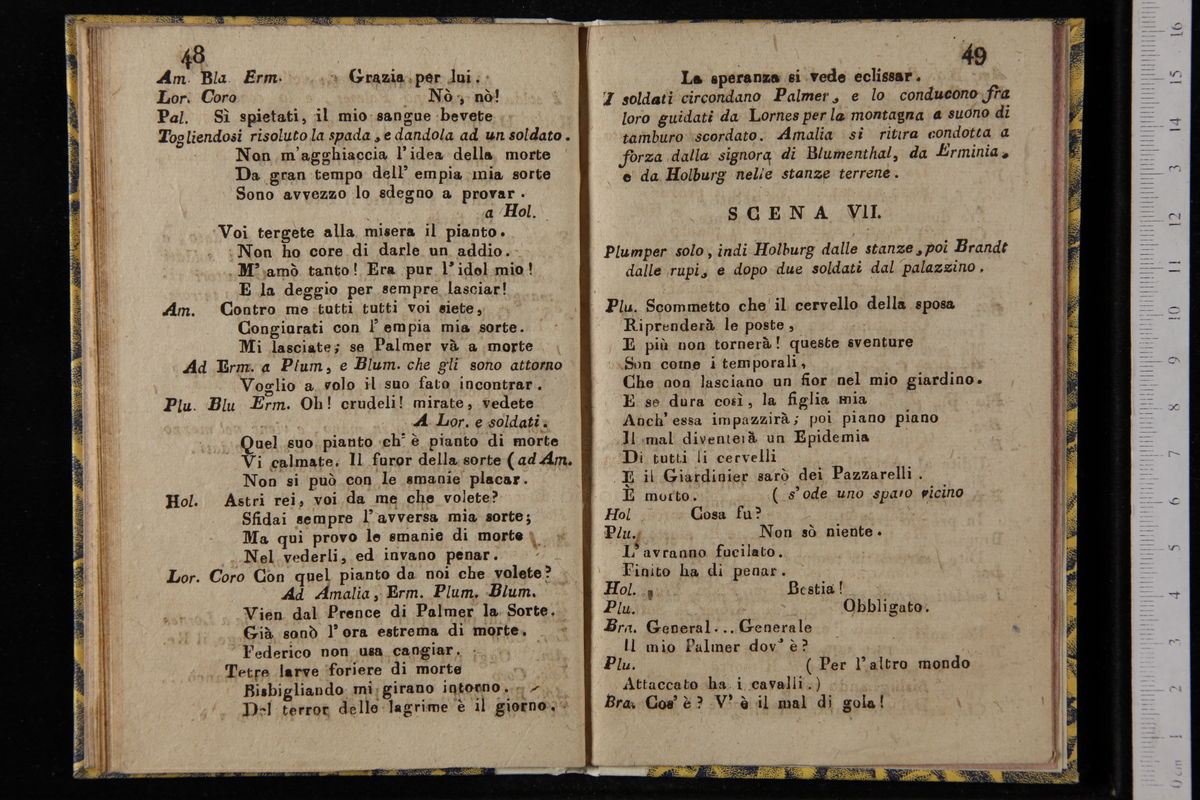 48
Am. Bla. Erm. Grazia per lui.
Lor. Coro Nò, nò!
Pal. Sì spietati, il mio sangue bevete
Togliendosi risoluto la spada, e dandola ad un soldato.
Non m'agghiaccia l'idea della morte
Da gran tempo dell' empia mia sorte
Sono avvezzo lo sdegno a provar.
a Hol.
Voi tergete alla misera il pianto.
Non ho core di darle un addio.
M' amò tanto! Era pur l'idol mio!
E la deggio per sempre lasciar!
Am. Contro me tutti tutti voi siete,
Congiurati con l' empia mia sorte.
Mi lasciate; se Palmer và a morte
Ad Erm. a Plum, e Blum. che gli sono attorno
Voglio a volo il suo fato incontrar.
Plu. Blu Erm. Oh! crudeli! mirate, vedete
A Lor. e soldati.
Quel suo pianto ch' è pianto di morte
Vi calmate. Il furor della sorte (ad Am.
Non si può con le smanie placar.
Hol. Astri rei, voi da me che volete?
Sfidai sempre l'avversa mia sorte;
Ma qui provo le smanie di morte
Nel vederli, ed invano penar.
Lor. Coro Con quel pianto da noi che volete?
Ad Amalia, Erm. Plum. Blum.
Vien dal Prence di Palmer la Sorte.
Già sonò l'ora estrema di morte.
Federico non usa cangiar.
Tetre larve foriere di morte
Bisbigliando mi girano intorno.
Del terror delle lagrime è il giorno.
49
La speranza si vede eclissar.
I soldati circondano Palmer, e lo conducono fra
loro guidati da Lornes per la montagna a suono di
tamburo scordato. Amalia si ritira condotta a
forza dalla signora di Blumenthal, da Erminia,
e da Holburg nelle stanze terrene.
SCENA VII.
Plumper solo, indi Holburg dalle stanze, poi Brandt
dalle rupi, e dopo due soldati dal palazzino.
Plu. Scommetto che il cervello della sposa
Riprenderà le poste,
E più non tornerà! queste sventure
Son come i temporali,
Che non lasciano un fior nel mio giardino.
E se dura così, la figlia mia
Anch' essa impazzirà; poi piano piano
Il mal diventerà un Epidemia
Di tutti li cervelli
E il Giardinier sarò dei Pazzarelli.
È morto. ( s'ode uno sparo vicino
Hol Cosa fu?
Plu. Non sò niente.
L'avranno fucilato.
Finito ha di penar.
Hol. Bestia!
Plu. Obbligato.
Bra. General... Generale
Il mio Palmer dov' è?
Plu. ( Per l'altro mondo
Attaccato ha i cavalli.)
Bra. Cos' è? V' è il mal di gola!